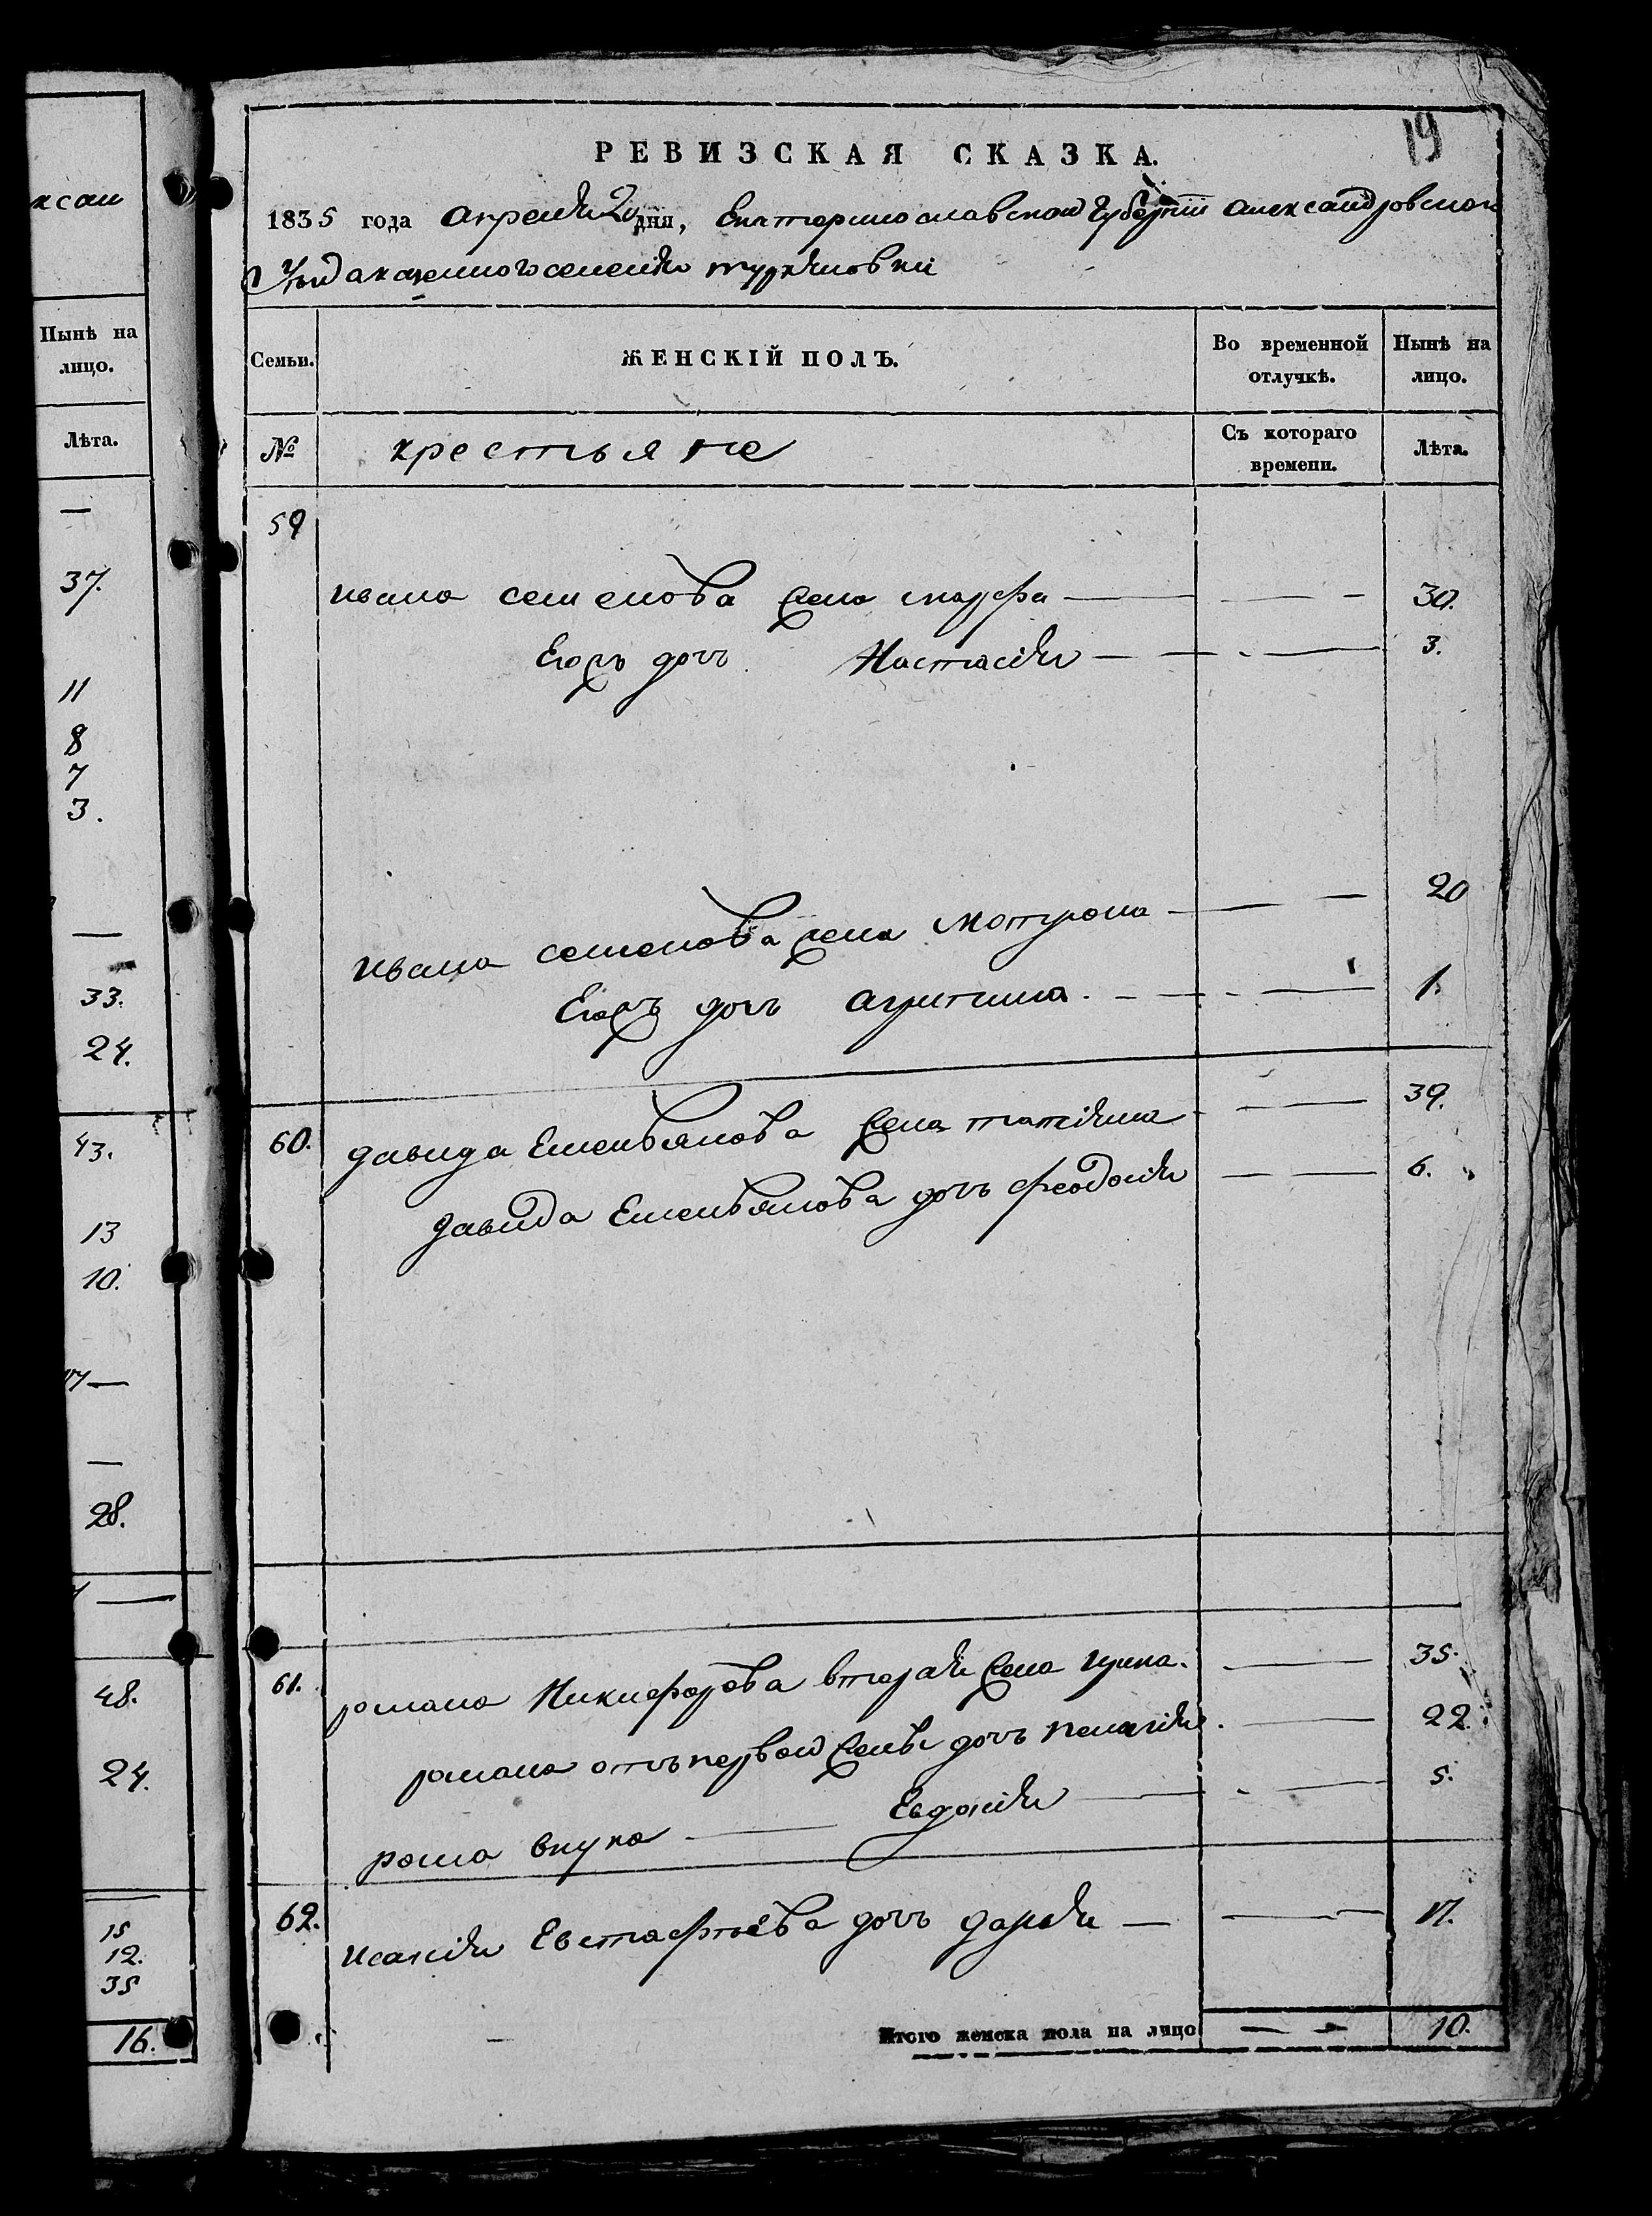 ксан
Нынѣ на
лицо.
Лѣта.
—
37.
11
8
7
3.
—
33.
24.
43.
13
10.
—
—
28.
—
48.
24.
15
12.
35
16.
19
РЕВИЗСКАЯ СКАЗКА.
1835 года апреля 20 дня, Екатеринославской Губернiи александровскаго
Уезда казенного селенiя туркеновки
Семьи. ЖЕНСКІЙ ПОЛЪ. Во временной отлучкѣ. Нынѣ на лицо.
№ крестьяне Съ котораго времени. Лѣта.
59
ивана семенова жена марфа — — 30.
Егожъ дочь Настасiя — — 3.
ивана семенова жена мотрона — — 20
Егожъ дочь агрипина. — — 1.
60. давида Емельянова жена татiяна — — 39.
давида Емельянова дочь феодосiя — — 6.
61. романа Никифорова вторая жена ирина. — 35.
романа отъ первой жены дочь пелагiя. — 22.
рома внука — Евдокiя — — 5.
62. исакiя Евстафьева дочь дарья — — 17.
Итого женска пола на лицо — — 10.